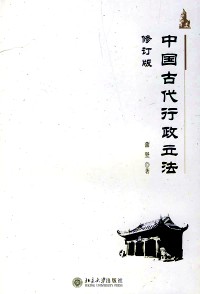 中国古代行政立法
修订版
蒲坚 著
北京大学出版社
PEKING UNIVERSITY PRESS